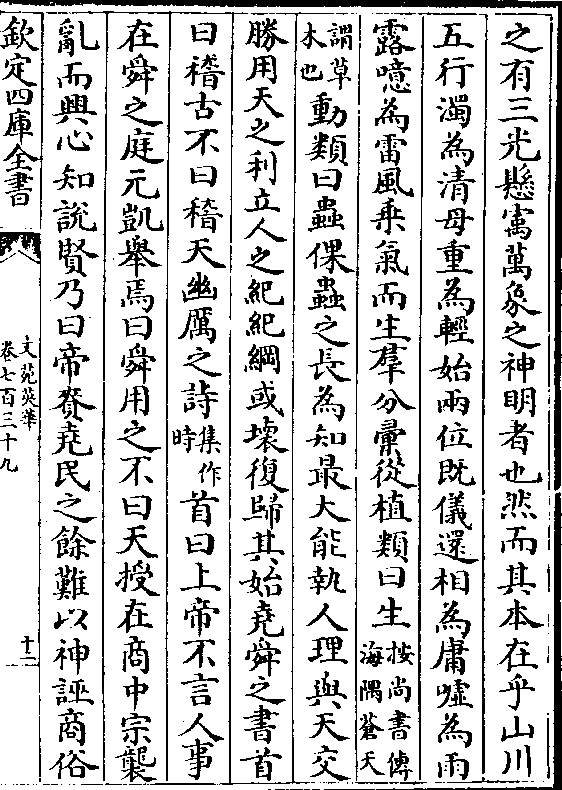 之有三光懸㝢萬象之神明者也然而其本在乎山川
五行濁為清母重為輕始兩位既儀還相為庸噓為雨
露噫為雷風乗氣而生羣分彚從植類曰生按尚書傳海隅蒼天
謂草木也動類曰蟲倮蟲之長為知最大能執人理與天交
勝用天之利立人之紀紀綱或壊復歸其始堯舜之書首
曰稽古不曰稽天幽厲之詩集作時首曰上帝不言人事
在舜之庭元凱舉焉曰舜用之不曰天授在商中宗襲
亂而興心知說賢乃曰帝賚堯民之餘難以神誣商俗
欽定四庫全書
文苑英華
卷七百三十九
十二